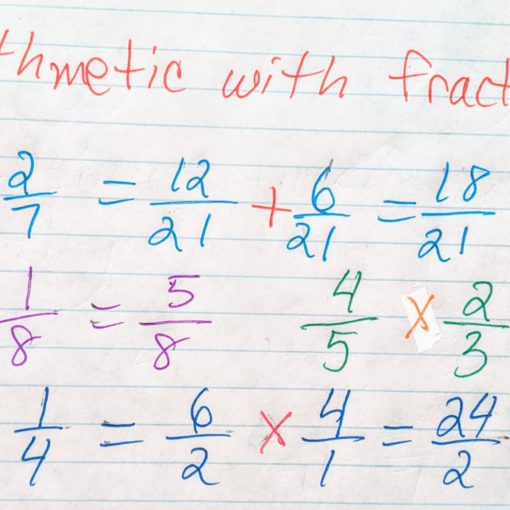 thmetic with fract
2/7 = 12/21 + 6/21 = 18/21
1/8 = 5/8 4/5 x 2/3
1/4 = 6/2 x 4/1 = 24/2